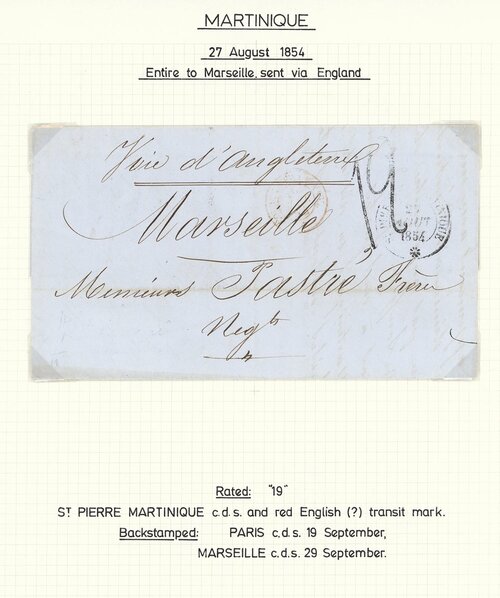 MARTINIQUE
27 August 1854
Entire to Marseille, sent via England
Voie d'Angleterre
19
Marseille
27
AOUT
1854
Messieurs Pastré Frères
Negts
Rated: "19"
ST PIERRE MARTINIQUE c.d.s. and red English (?) transit mark.
Backstamped: PARIS c.d.s. 19 September,
MARSEILLE c.d.s. 29 September.